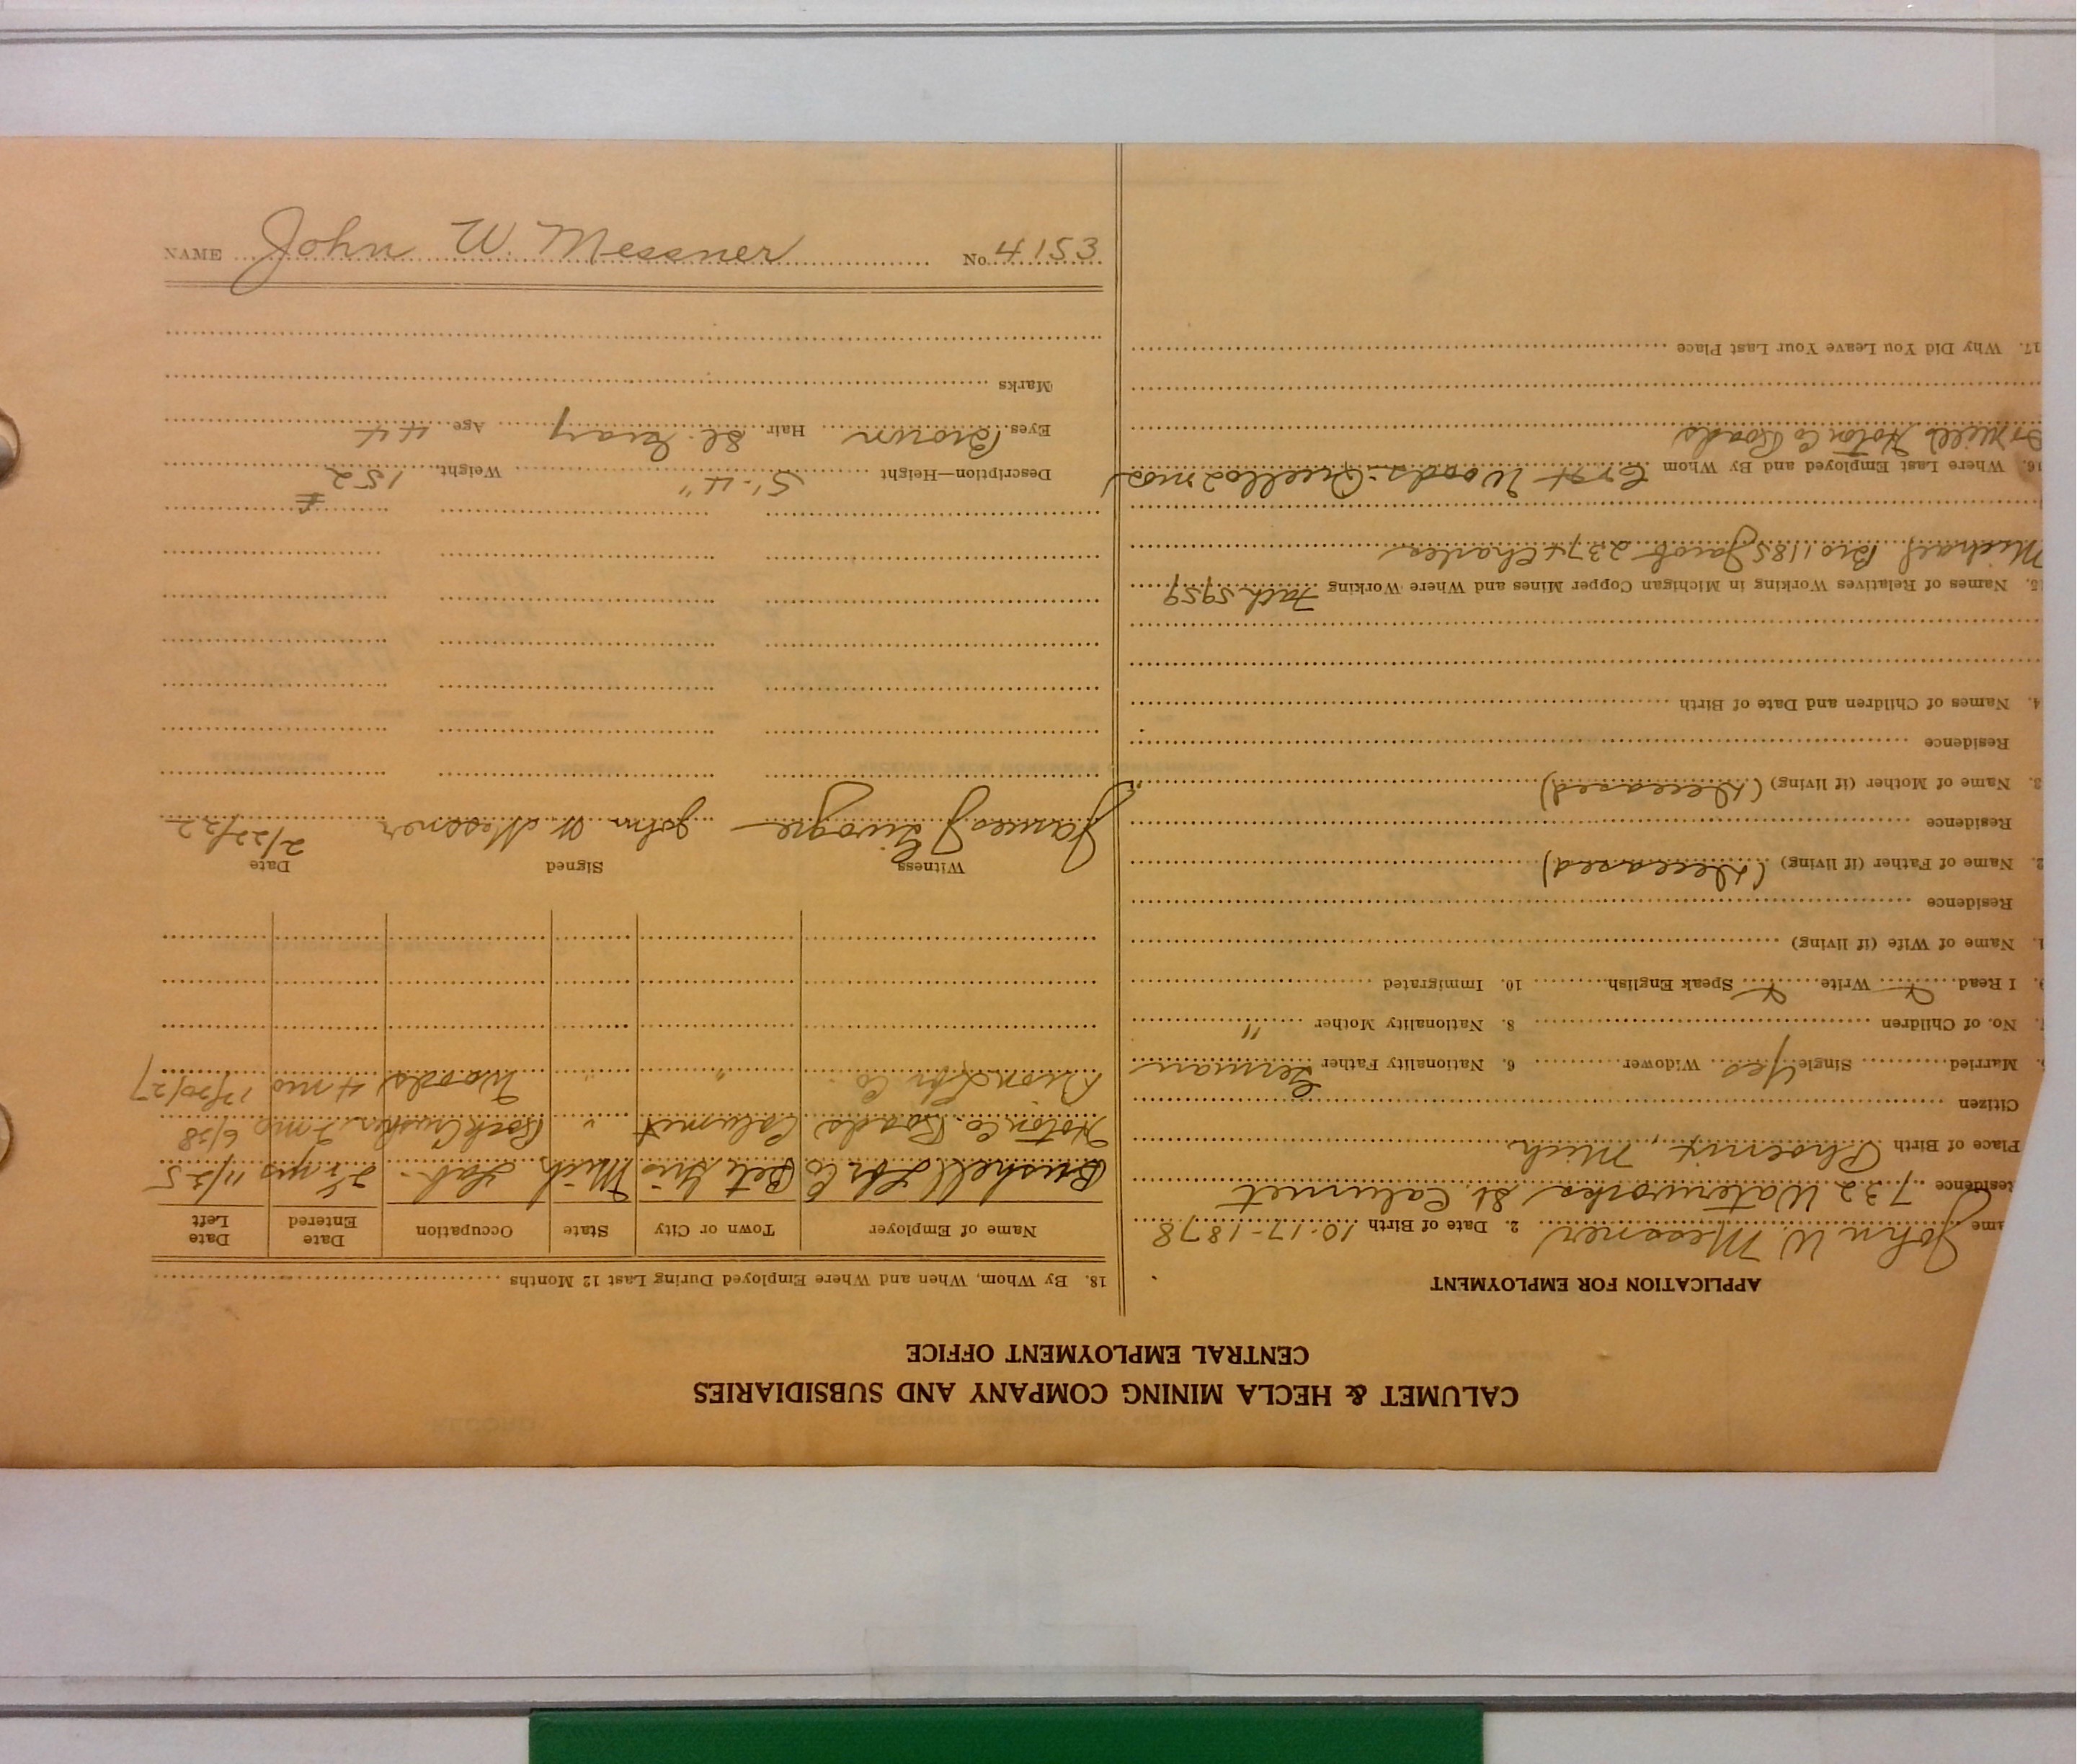 CALUMET & HECLA MINING COMPANY AND SUBSIDIARIES
CENTRAL EMPLOYMENT OFFICE
APPLICATION FOR EMPLOYMENT
ame John W. Messner 2. Date of Birth 10-17-1878
Residence 732 Waterworks St. Calumet
Place of Birth Phoenix, Mich
Citizen
Married Single Yes Widower 6. Nationality Father German
No. of Children 8. Nationality Mother "
9. I Read Write Speak English 10. Immigrated
1. Name of Wife (if living)
Residence
2. Name of Father (if living) (Deceased)
Residence
3. Name of Mother (if living) (Deceased)
Residence
4. Names of Children and Date of Birth
5. Names of Relatives Working in Michigan Copper Mines and Where Working 5959
Michael Bro 1185 Jacob 2374 Charles
16. Where Last Employed and By Whom Woods 2 mos
Hoton Co Roads
17. Why Did You Leave Your Last Place
18. By Whom, When and Where Employed During Last 12 Months
Name of Employer Town or City State Occupation Date Entered Date Left
Bushell Lbr Co Bete Gris Mich Lab. 2½ yrs 11/25
Hoton Co. Roads Calumet " Rock Crusher 2 mo 6/28
Lbr Co. " " Woods 4 mo 12/20/27
Witness Signed Date
James J John W. Messner 2/22/22
Description—Height 5'-4" Weight 152
Eyes Brown Hair Sl. Gray Age 44
Marks
NAME John W. Messner No. 4153